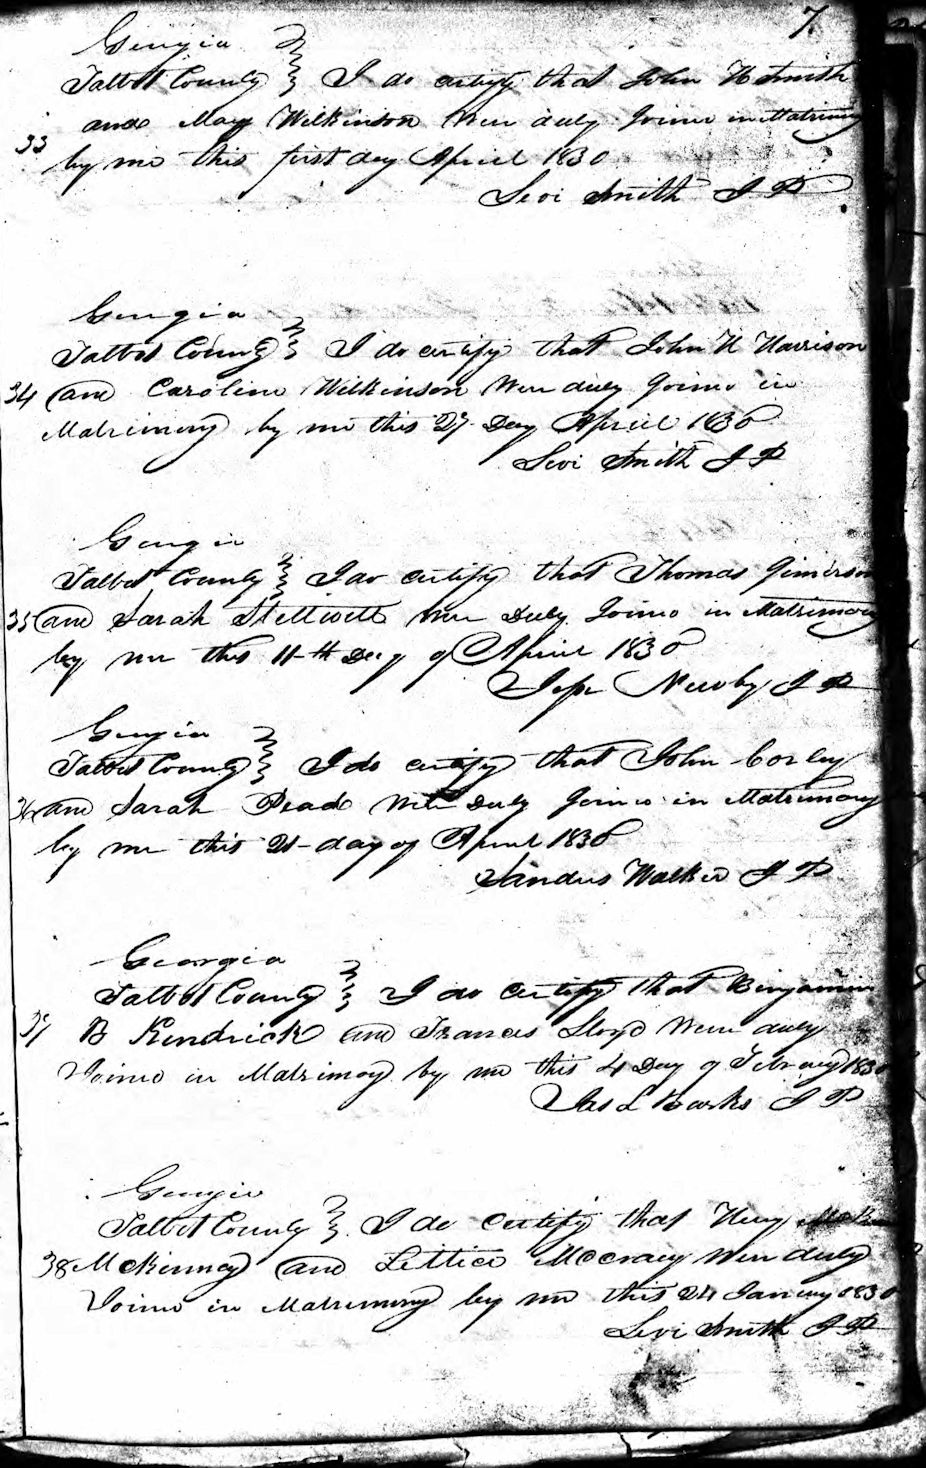 7.
Georgia
Talbot County } I do certify that John H Smith
and Mary Wilkinson Were duly Joined in Matrimony
33 by me this first day April 1830
Levi Smith J P
Georgia
Talbot County } I do certify that John H Harrison
34 and Caroline Wilkinson Were duly Joined in
Matrimony by me this 27 Day April 1830
Levi Smith J P
Georgia
Talbot County } I do certify that Thomas Jimerson
35 and Sarah Were Duly Joined in Matrimony
by me this 11th Day of April 1830
Newby J P
Georgia
Talbot County } I do certify that John Corley
36 and Sarah Read Were Duly Joined in Matrimony
by me this 21 day of April 1830
Sanders Walker J P
Georgia
Talbot County } I do certify that Benjamin
37 B Kendrick and Frances Lloyd Were duly
Joined in Matrimony by me this 4 Day of 1830
Jas L J P
Georgia
Talbot County } I do certify that
38 McKinney and Lettice McCrary Were duly
Joined in Matrimony by me this 24 January 1830
Levi Smith J P